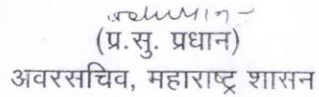 (प्र.सु. प्रधान)
अवरसचिव, महाराष्ट्र शासन